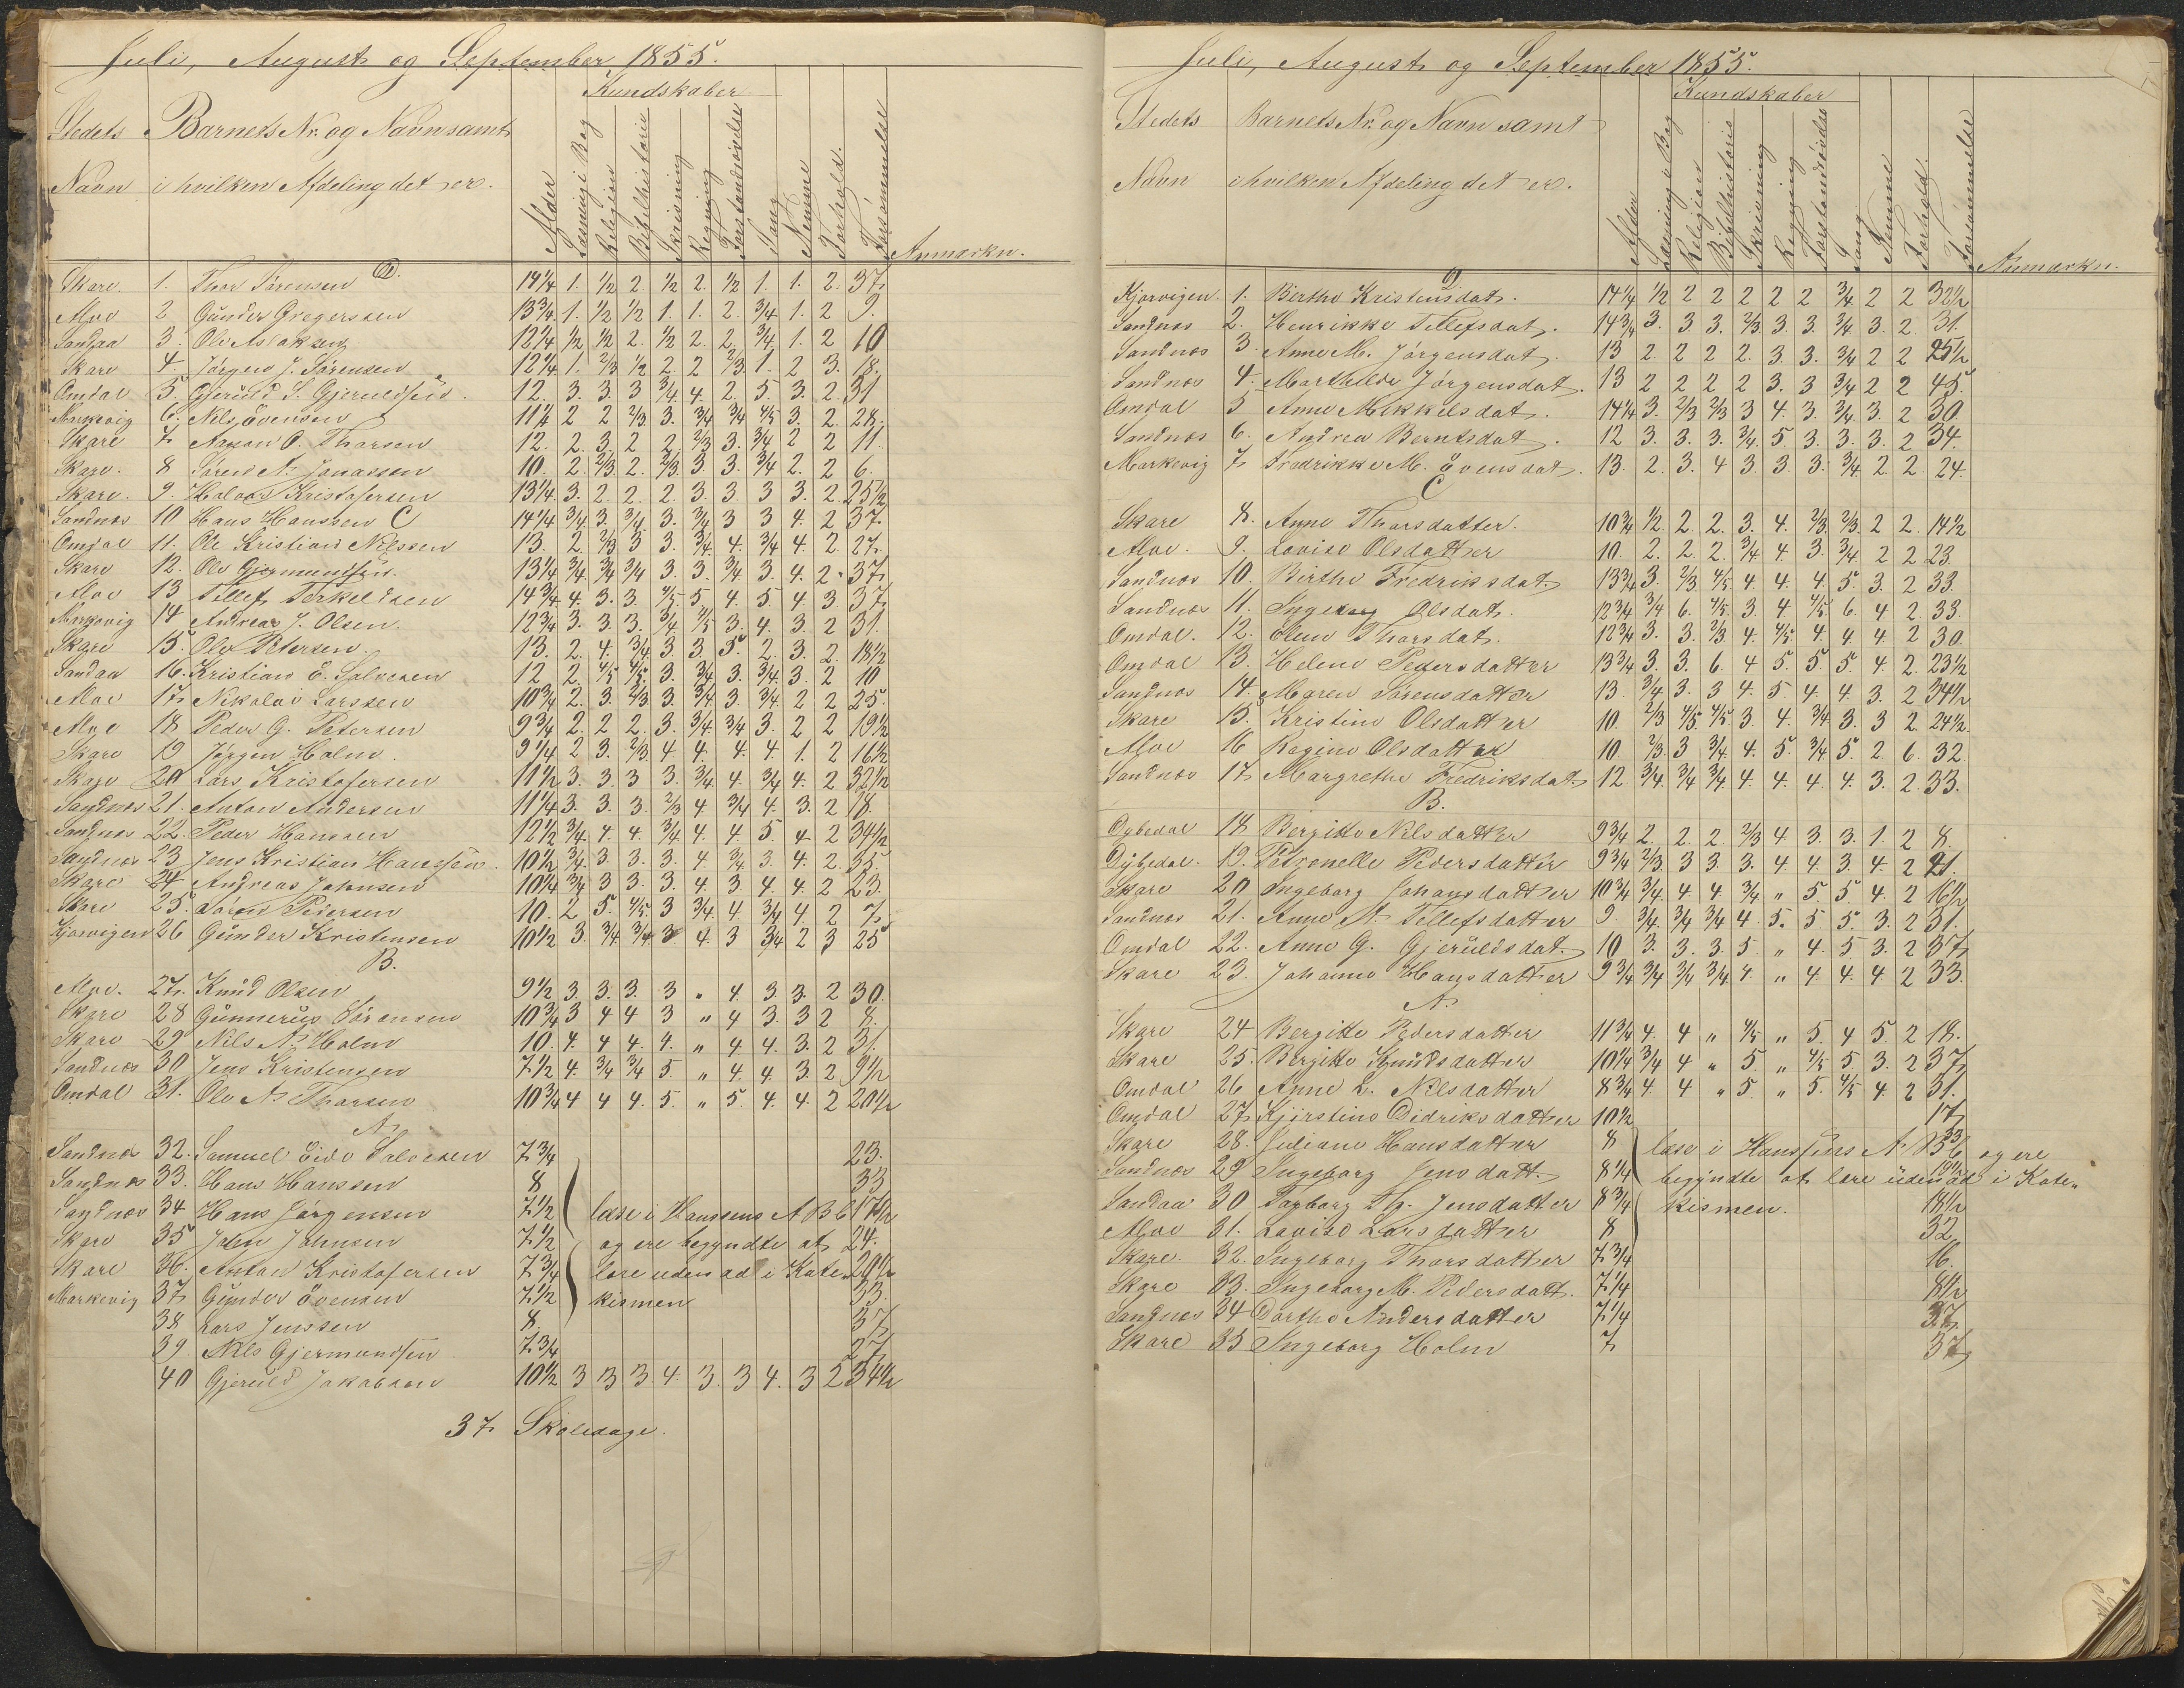 Juli, August og September 1855.
Kundskaber
Stedets Barnets Nr. og Navn samt
Navn i hvilken Afdeling det er.
Alder Læsning i Bog Religion Bibelhistorie Skrivning Regning Forstandsøvelse Sang Nemme Forhold. Forsømmelse Anmærkn.
D.
Skare. 1. Thor Sørensen 14 1/4 1. 1/2 2. 1/2 2. 1/2 1. 1. 2. 37
Aloe 2 Gunder Gregersen 13 3/4 1. 1/2 1/2 1. 1. 2. 3/4 1. 2 9.
Sandaa 3. Ole Aslaksen 12 1/4 1/2 1/2 2. 1/2 2. 2. 3/4 1. 2 10
Skare 4. Jørgen J. Sørensen 12 1/4 1. 2/3 1/2 2. 2 2/3 1. 2 3. 18.
Omdal 5. Gjeruld S. Gjeruldsen. 12. 3. 3. 3 3/4 4. 2. 5. 3. 2. 31
Markevig 6. Nils Evensen 11 1/4 2 2 2/3 3. 3/4 3/4 4/5 3. 2. 28.
Skare 7 Aanon O. Thorsen 12. 2. 3. 2 2 2/3 3. 3/4 2 2 11.
Skare. 8 Søren N. Jonassen 10. 2. 2/3 2. 2/3 3. 3. 3/4 2. 2 6.
Skare. 9. Halvor Kristofersen 13 1/4 3. 2. 2. 2. 3. 3. 3 3. 2. 25 1/2
Sandnes 10 Hans Hanssen C 14 1/4 3/4 3. 3/4 3. 3/4 3 3 4. 2 37.
Omdal 11. Ole Kristian Nilssen 13. 2. 2/3 3 3. 3/4 4. 3/4 4. 2. 27.
Skare 12. Ole Gjermundsen. 13 1/4 3/4 3/4 3/4 3. 3. 3/4 3. 4. 2. 37
Aloe 13 Tellef Terkeldsen 14 3/4 4. 3. 3. 4/5 5 4. 5. 4. 3. 37
Markevig 14 Andreas J. Olsen. 12 3/4 3. 3. 3. 3/4 4/5 3. 4. 3. 2 31.
Skare 15. Ole Petersen. 13. 2. 4. 3/4 3. 3 5. 2. 3. 2. 18 1/2
Sandaa 16. Kristian E. Salvesen 12 2. 4/5 4/5 3. 3/4 3. 3/4 3. 2 10
Aloe 17 Nikolai Larssen 10 3/4 2. 3. 2/3 3. 3/4 3. 3/4 2 2 25.
Aloe 18 Peder G. Petersen 9 3/4 2. 2. 2. 3. 3/4 3/4 3. 2 2 19 1/2
Skare 19 Jørgen Holm. 9 1/4 2 3. 2/3 4 4. 4. 4. 1. 2 16 1/2
Skare 20 Lars Kristofersen 11 1/2 3. 3. 3 3. 3/4 4. 3/4 4. 2 32 1/2
Sandnes 21. Anton Andersen 11 1/4 3. 3. 3. 2/3 4 3/4 4. 3. 2 18.
Sandnes 22. Peder Hanssen 12 1/2 3/4 4. 4. 3/4 4. 4 5 4 2 34 1/2
Sandnes 23 Jens Kristian Hanssen. 10 1/2 3/4 3. 3. 3. 4. 3/4 3. 4. 2 35.
Skare 24 Andreas Johnsen 10 1/4 3/4 3 3. 3. 4. 3 4. 4. 2 23.
Skare 25. Søren Pedersen 10. 2 5. 4/5 3 3/4 4. 3/4 4. 2 7.
Kjorvigen 26 Gunder Kristensen 10 1/2 3. 3/4 3/4 3 4. 3 3/4 2 3 25
B.
Aloe. 27. Knud Olsen 9 1/2 3. 3. 3. 3 " 4. 3. 3. 2 30.
Skare 28 Gunnerius Sørensen 10 3/4 3 4 4 3 " 4 3. 3 2 8.
Skare 29 Nils N. Holm 10. 4. 4 4. 4. " 4. 4. 3. 2 31.
Sandnes 30 Jens Kristensen 7 1/2 4. 3/4 3/4 5. " 4. 4. 3. 2. 9 1/2
Omdal 31. Ole N. Thorsen 10 3/4 4 4 4. 5. " 5. 4. 4. 2 20 1/2
A.
Sandnes 32. Samuel Eide Salvesen 7 3/4 23.
Sandnes 33. Hans Hanssen 8 33
Sandnes 34 Hans Jørgensen 7 1/2 læse i Hanssens A B C 17 1/2
Skare 35 John Johnsen 7 1/2 og ere begyndte at 24.
Skare 36. Anton Kristofersen 7 3/4 lære uden ad i Kate„
Markevig 37 Gunder Evensen 7 1/2 kismen 33.
38 Lars Jenssen 8. 37
39. Nils Gjermundsen 7 3/4
40 Gjeruld Jakobsen 10 1/2 3 3 3. 4. 3. 3 4. 3 2 34 1/2
37 Skoledage.
Juli, August og September 1855.
Kundskaber
Stedets Barnets Nr. og Navn samt
Navn i hvilken Afdeling det er.
Alder Læsning i Bog Religion Bibelhistorie Skrivning Regning Forstandsøvelse Sang Nemme Forhold. Forsømmelse Anmærkn.
D
Kjorvigen. 1. Birthe Kristensdat. 14 1/4 1/2 2 2 2 2 2 3/4 2 2 32 1/2
Sandnes 2. Henrikke Tellefsdat. 14 3/4 3. 3 3. 2/3 3. 3. 3/4 3. 2. 31.
Sandnes 3. Anne M. Jørgensdat. 13 2. 2 2 2. 3. 3. 3/4 2 2 25 1/2
Sandnes 4. Marthilde Jørgensdat. 13 2 2 2 2 3. 3 3/4 2 2 45.
Omdal 5 Anne Mikkelsdat. 14 1/4 3. 2/3 2/3 3 4. 3. 3/4 3. 2 30.
Sandnes 6. Andrea Berntsdat. 12 3. 3. 3. 3/4 5. 3. 3. 3. 2 34.
Markevig 7 Fredrikke M. Evensdat. 13. 2. 3. 4 3. 3. 3. 3/4 2 2. 24.
C
Skare 8. Anne Thorsdatter. 10 3/4 1/2 2. 2. 3. 4. 2/3 2/3 2 2. 14 1/2
Aloe. 9. Lovise Olsdatter 10. 2. 2. 2. 3/4 4 3. 3/4 2 2 23
Sandnes 10. Birthe Fredriksdat. 13 3/4 3. 2/3 4/5 4 4. 4. 5. 3. 2 33.
Sandnes 11. Ingeborg Olsdat. 12 3/4 3/4 6. 4/5 3. 4 4/5 6. 4 2. 33.
Omdal. 12. Elen Thorsdat. 12 3/4 3. 3. 2/3 4. 4/5 4. 4. 4. 2 30.
Omdal 13. Helene Pedersdatter 13 3/4 3. 3. 6. 4 5. 5. 5. 4. 2. 23 1/2
Sandnes 14. Maren Sørensdatter 13. 3/4 3. 3 4. 5. 4. 4. 3. 2 34 1/2
Skare 15. Kristine Olsdatter 10. 2/3 4/5 4/5 3. 4. 3/4 3. 3 2. 24 1/2.
Aloe 16 Ragine Olsdatter 10. 2/3 3 3/4 4. 5. 3/4 5. 2 6. 32.
Sandnes 17 Margrethe Fredriksdat. 12. 3/4 3/4 3/4 4. 4. 4. 4. 3. 2. 33.
B.
Dybedal 18 Bergitte Nilsdatter 9 3/4 2. 2. 2. 2/3 4 3. 3. 1. 2 8.
Dybedal. 19. Petronelle Pedersdatter 9 3/4 2/3 3 3. 3. 4. 4 3. 4. 2 21.
Skare 20 Ingeborg Johansdatter 10 3/4 3/4 4. 4 3/4 " 5. 5. 4. 2 16 1/2
Sandnes 21. Anne M. Tellefsdatter 9. 3/4 3/4 3/4 4. 5. 5. 5. 3. 2 31.
Omdal 22. Anne G. Gjeruldsdat. 10 3. 3. 3. 5 " 4. 5 3. 2 37
Skare 23. Johanne Hansdatter 9 3/4 3/4 3/4 3/4 4. " 4. 4. 4 2 33.
A.
Skare 24 Bergitte Pedersdatter 11 3/4 4. 4 " 4/5 " 5. 4 5. 2 18.
Skare 25. Bergitte Knudsdatter 10 1/4 3/4 4 " 5. " 4/5 5 3. 2 37
Omdal 26 Anne L. Nilsdatter 8 3/4 4. 4 " 5 " 5. 4/5 4 2 31.
Omdal 27 Kjirstine Didriksdatter 10 1/2 17
Skare 28. Juliane Hansdatter 8 læse i Hanssens A B C og ere 33
Sandnes 29 Ingeborg Jensdatt. 8 1/4 begyndte at lære uden ad i Kate„
Sandaa 30 Tagborg Th. Jensdatter 8 3/4 kismen. 18 1/2
Aloe 31. Lovise Larsdatter 8 32
Skare. 32. Ingeborg Thorsdatter 7 3/4 16.
Skare 33. Ingeborg M. Pedersdatt. 7 1/4 8 1/2
Sandnes 34 Dorthe Andersdatter 7 1/4 37
Skare 35 Ingeborg Holm 7 37